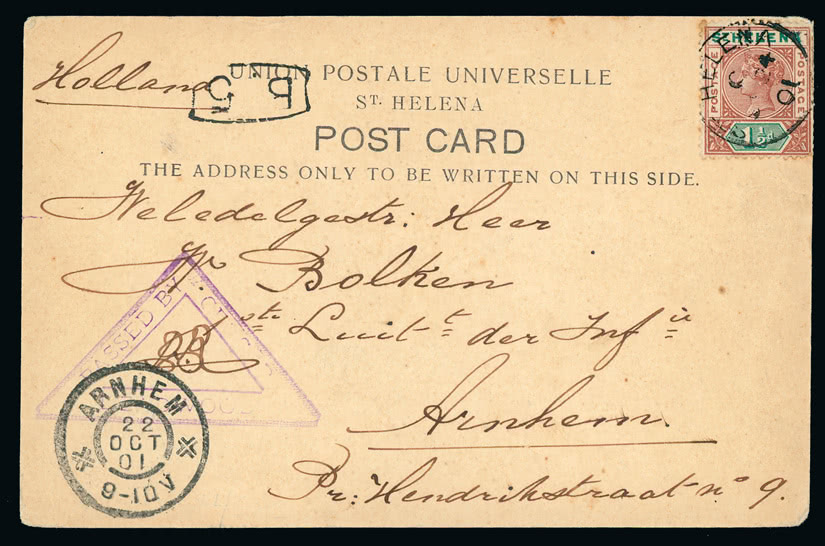 Holland
UNION POSTALE UNIVERSELLE
ST. HELENA
POST CARD
THE ADDRESS ONLY TO BE WRITTEN ON THIS SIDE.
ST HELENA
POSTAGE POSTAGE
1½d
HELENA
01
PB
5
Weledelgestr: Heer
Bolken
Luitt der Infie
Arnhem.
Pr: Hendrikstraat no 9.
PASSED BY
ARNHEM
22
OCT
01
9-10V